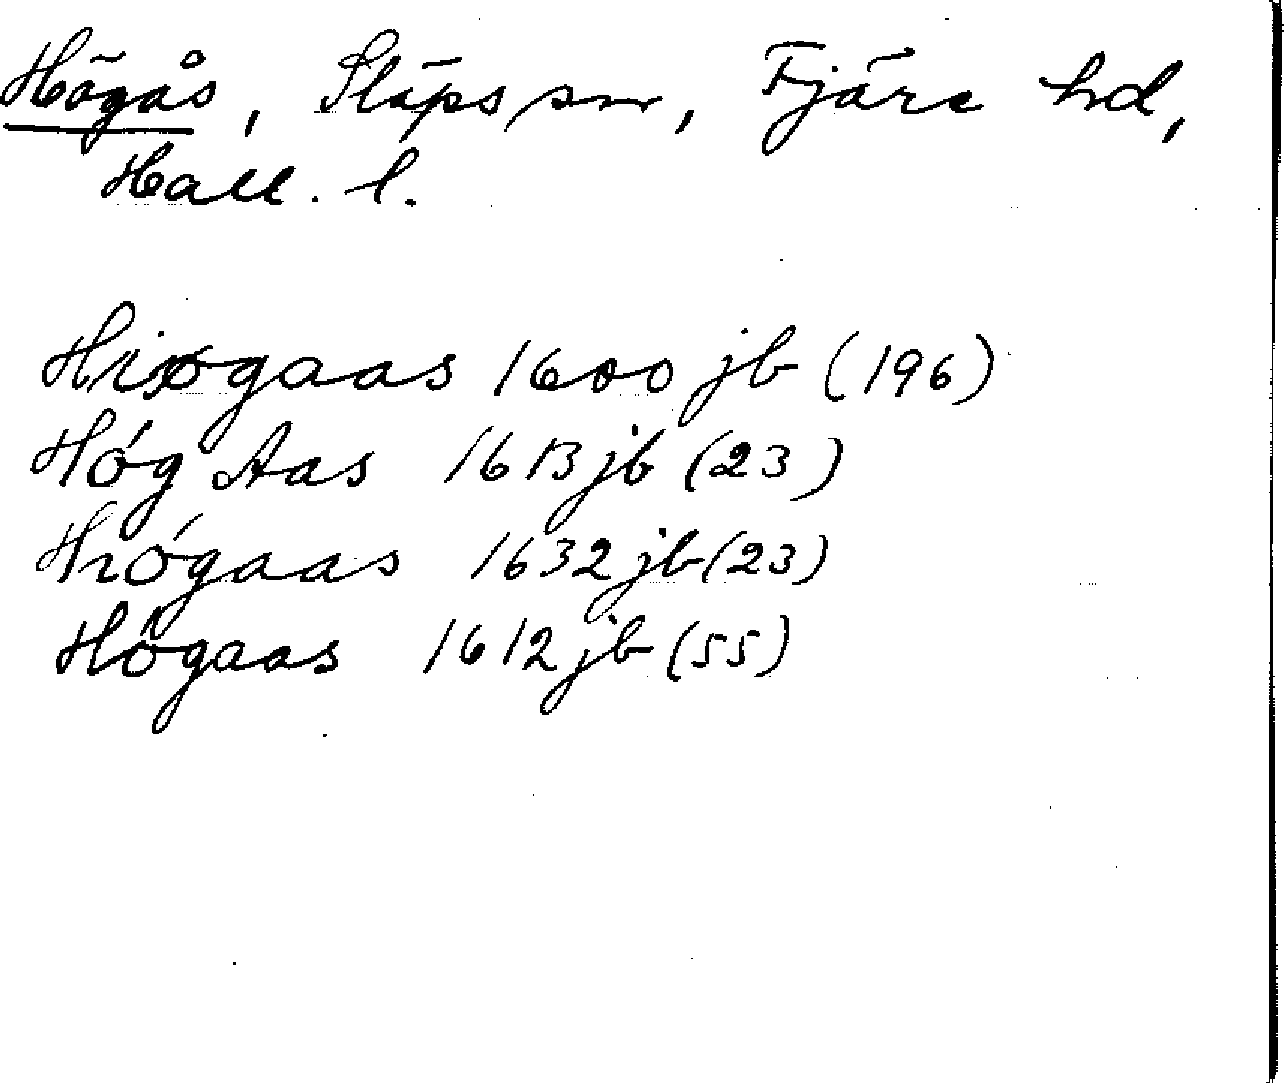 Högås, Släps sn, Fjäre hd,
Hall. l.
Hiøgaas 1600 jb (196)
Hóg Aas 1613 jb (23)
Hiógaas 1632 jb (23)
Högaas 1612 jb (55)